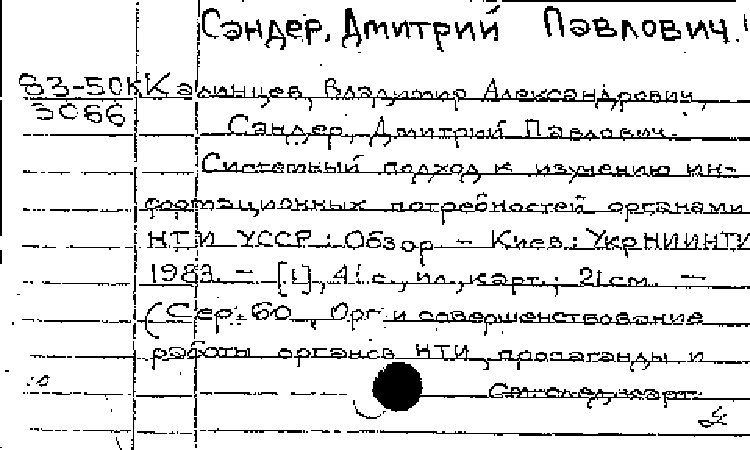 Сандер, Дмитрий Павлович.
83-50К Калинцев, Владимир Александрович,
3066
Сандер, Дмитрий Павлович.
Системный подход к изучению ин-
формационных потребностей органами
НТИ УССР : Обзор - Киев : УкрНИИНТИ
1983. - [1], 41 с., ил., карт.; 21 см. -
(Сер. 60, Орг. и совершенствование
работы органов НТИ, пропаганды и
См. след. карт.